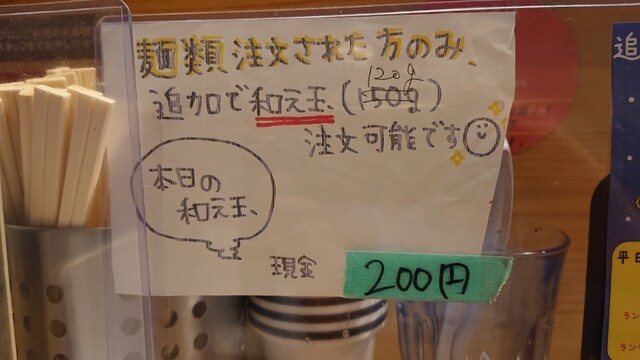 麺類注文された方のみ、
追加で和え玉、(150g)
120g
注文可能です
本日の
和え玉、
現金
200円
追
平日
ラン
ラン